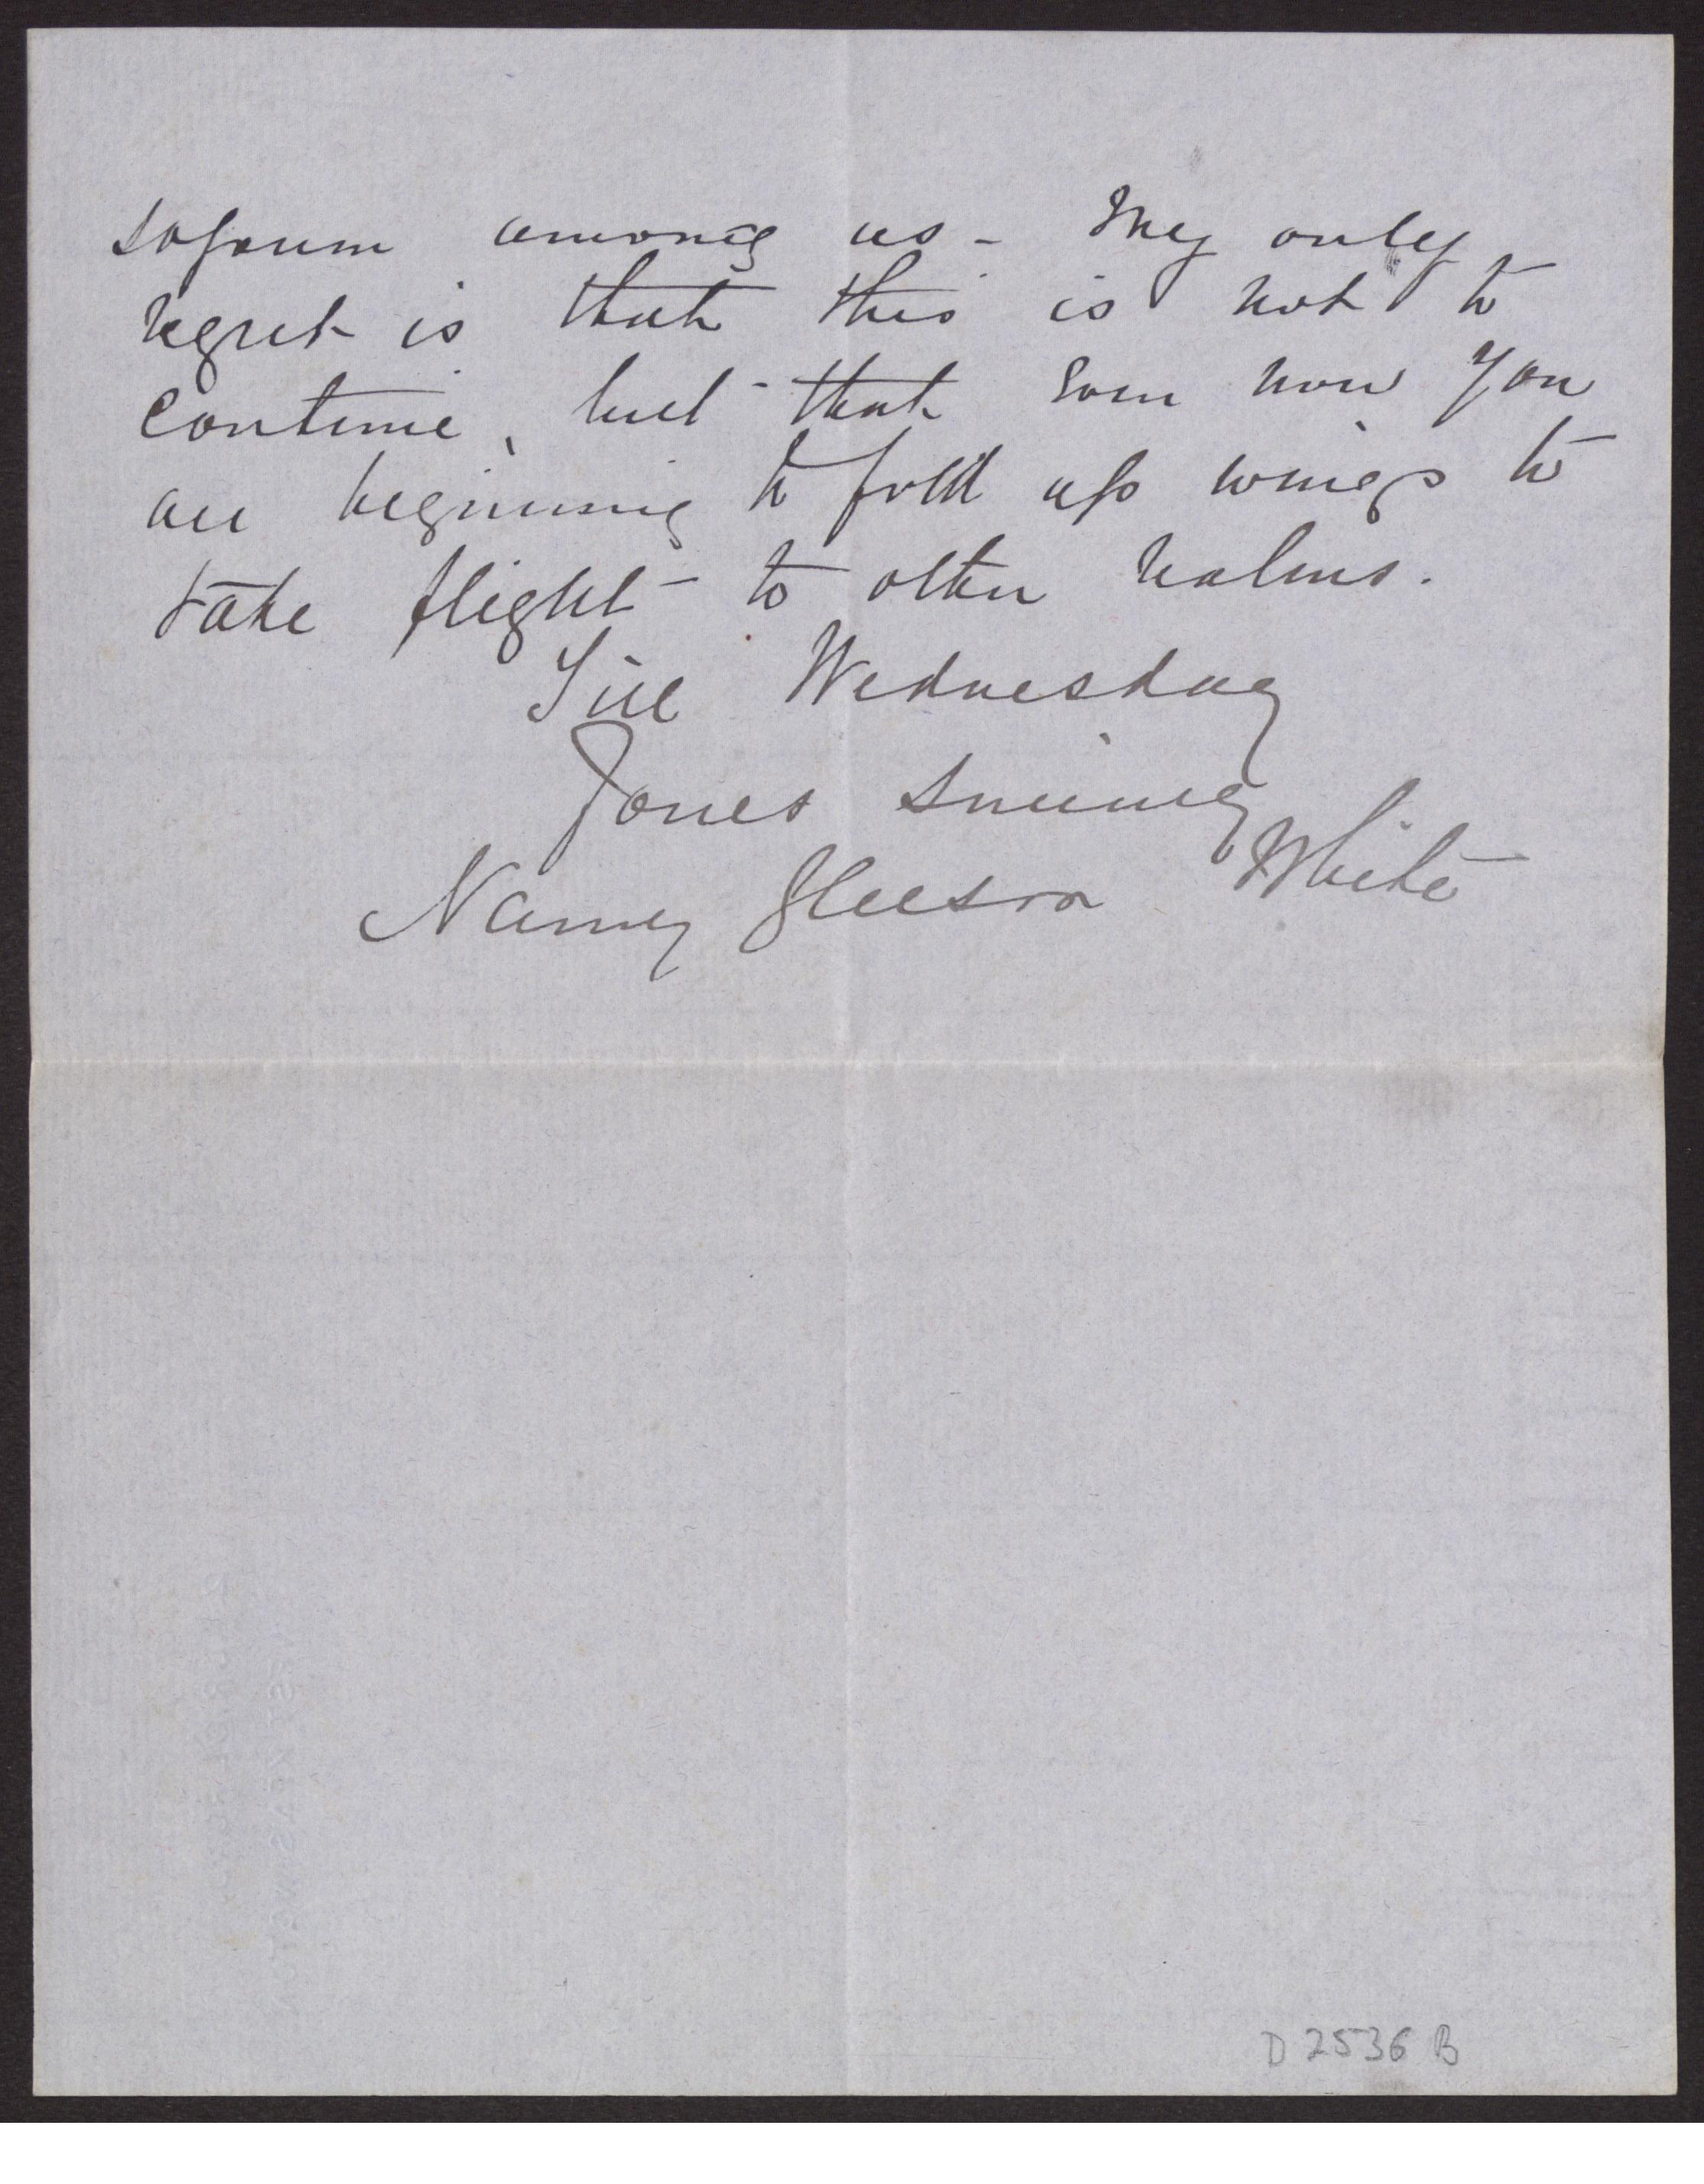 sojourn among us - My only
regret is that this is not to
continue, but that even now you
are beginning to fold up wings to
take flight to other realms.
Till Wednesday
Yours sincerely
Nancy Gleeson White
D 2536 B